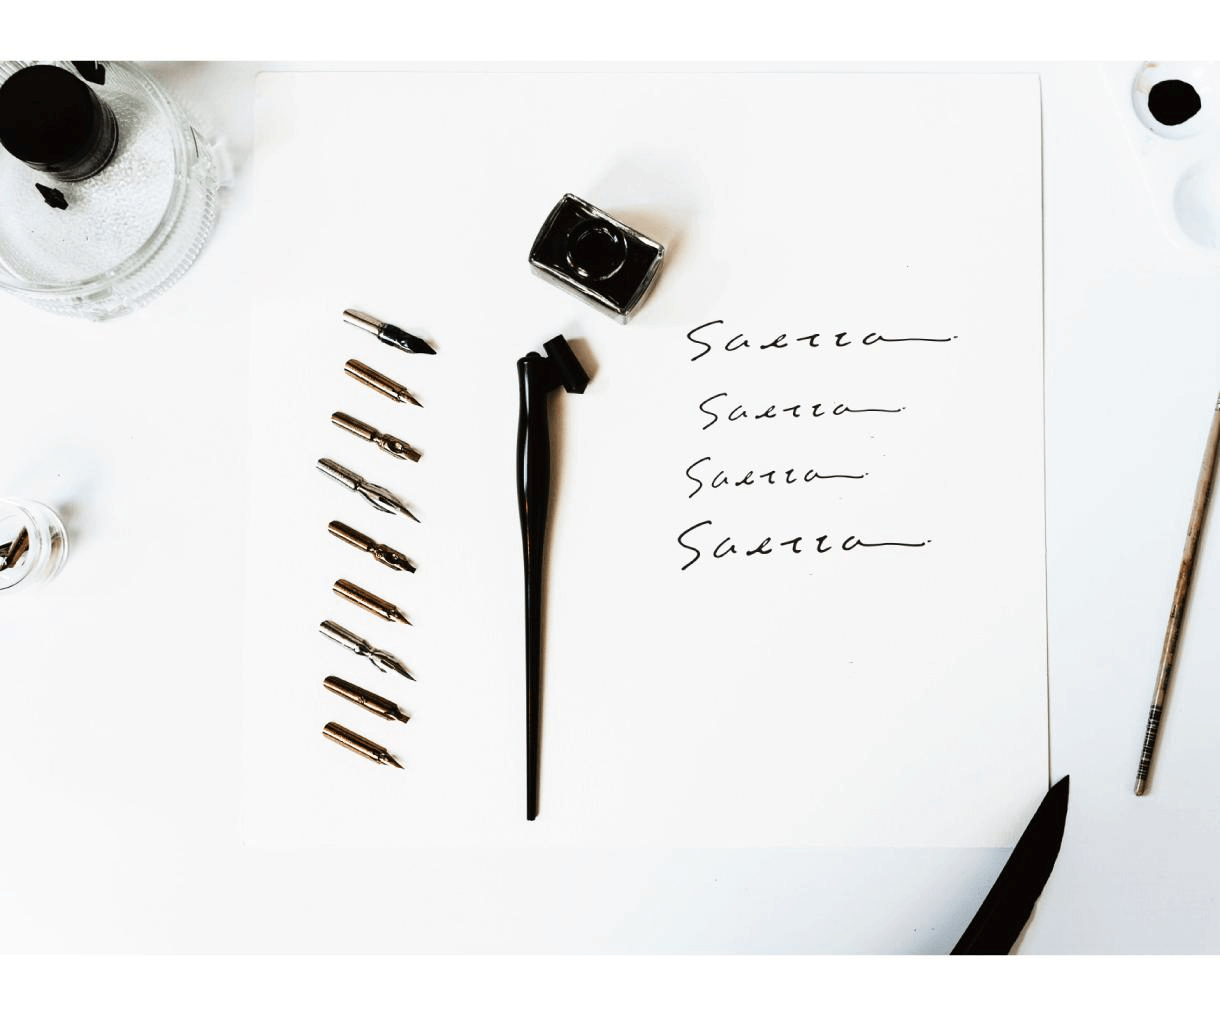 Saerra
Saerra
Saerra
Saerra